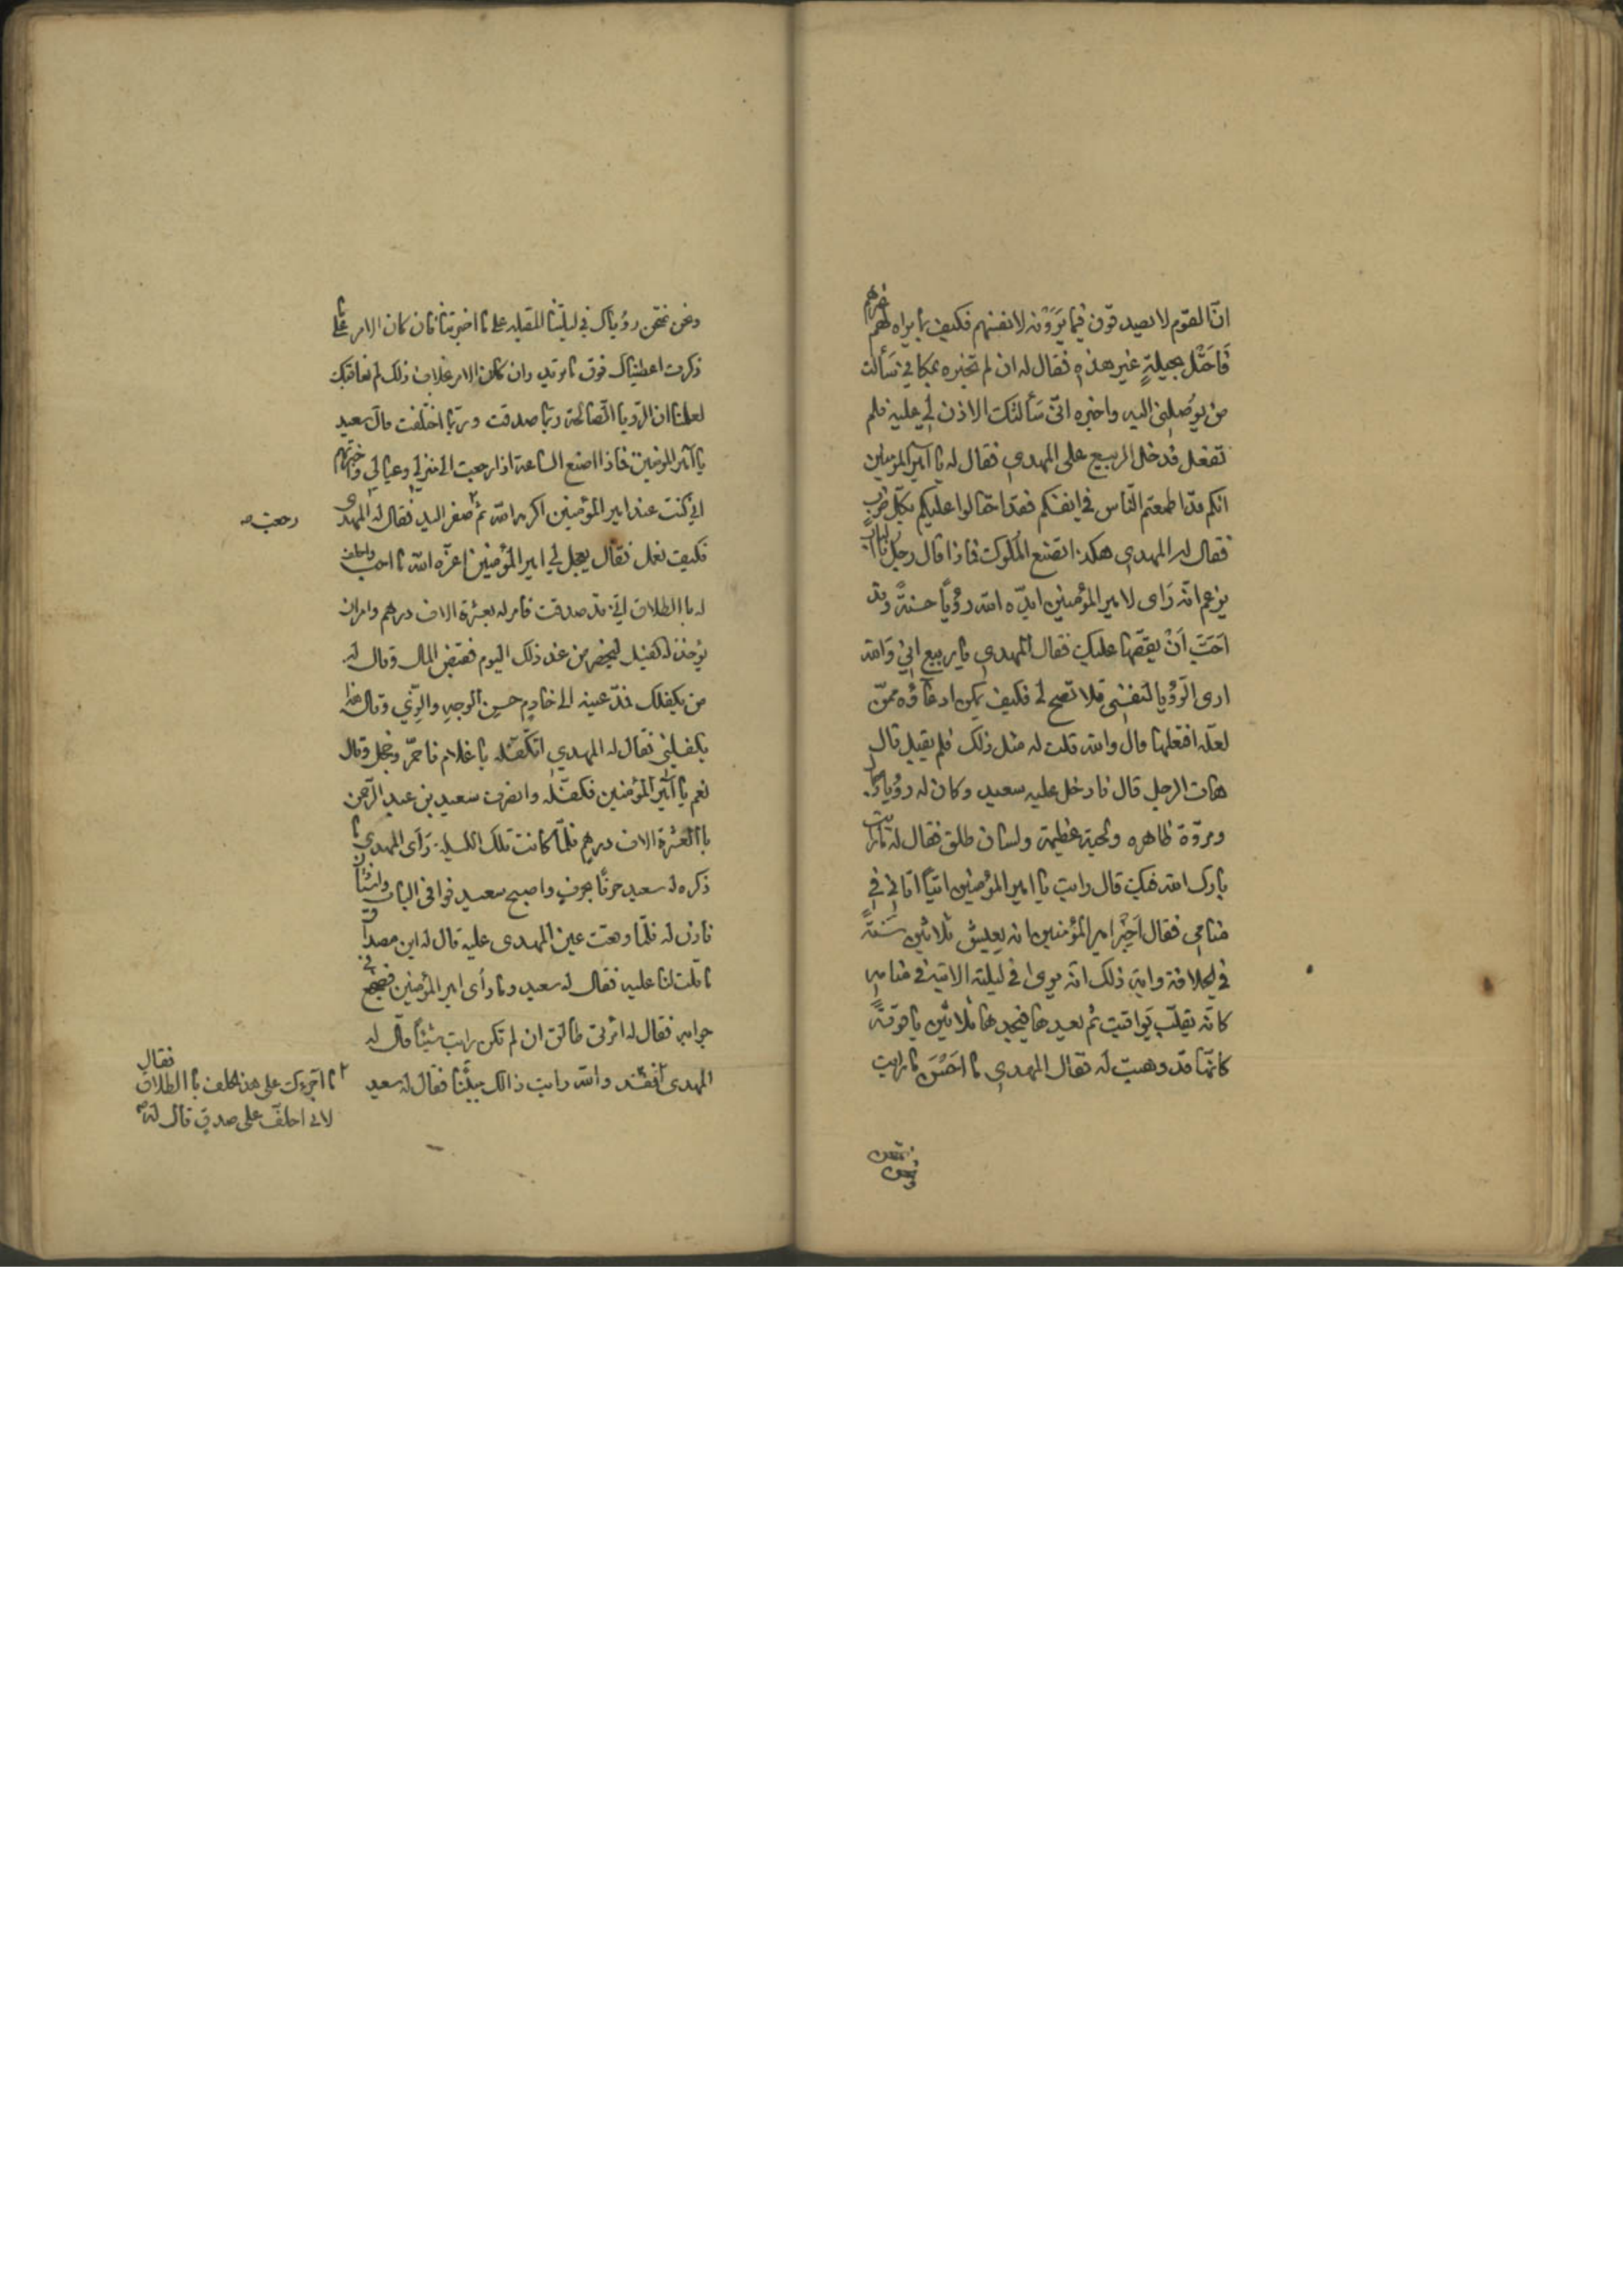 انّ القوم لا يصدقون فيما يَرَوْنه لانفسهم فكيف بما يراه لهم غيرهم
فَاحَتْل بحيلةٍ غير هذه فقال له ان لم تخبره بمكاني سَألت
من يوُصلني اليه واخبره انّى سَألتك الاذن لي عليه فلم
تفعل فدخل الربيع على المهدي فقال له يا امير المومنين
انكم قد اطمعتم الناس في انفسكم فقد احتالوا عليكم بكلّ ضرب
فقال له المهدي هكذا تصنع الملوك فماذا قال رجل بالباب
يزعم انّه رَاى لامير المؤمنين ايدّه الله رؤيًا حسنةً وقد
احَبّ اَنْ يقصّها عليك فقال المهدي يا ربيع اني وَالله
ارى الرّؤيا لنفسى فلا تصح لي فكيف بمن ادعاؤه ممّن
لعلّه افتعلها قال والله قلت له مثل ذلك فلم يقبل قال
هات الرجل قال فادخل عليه سعيد وكان له رؤيا وجمال
ومروّة ظاهره ولحية عظيمة ولسان طلق فقال له ما رايت
بارك الله فيك قال رايت يا امير المؤمنين اتيًا اتاني في
منامى فقال اَخِبْر امير المؤمنين انه يعيش ثلاثين سَنةً
في الخلافة واية ذلك انّه يرى في ليلته الاتية في منامه
كانّه يقلّب يَواقيت ثم يعدها فيجدها ثلاثين ياقوتةً
كانمّا قد وهبت له فقال المهدي ما احَسَنَ ما رايت
ونحن نمتحن
ونحن نمتحن رؤياك في ليلتنا المقبله على ما اخبرتنا فان كان الامر على ما
ذكرت اعطيناك فوق ما تريد وان كان الامر بخلاف ذلك لم نعاقبك
لعلمنا ان الرّويا الصّالحة ربّما صدقت وربّما اختلفت قال سعيد
يا امير المومنين فماذا اصنع الساعة اذا رجعت الى منزلي وعيالي وخبرّتهم
اني كنت عند امير المؤمنين اكرمه الله ثم صفر اليد فقال له المهدى
رجعت صه
فكيف نعمل فقال يعجل لي امير المؤمنين اعزّه الله ما احب واحلف
له باالطلاق اني قد صدقت فامر له بعشرة الاف درهم وامران
يؤخذ له كفيل ليحضر من غد ذلك اليوم فقبض المال وقال له
من يكفلك فمدّ عينه الى خادم حسن الوجه والزّي وقال هذا
يكفلني فقال له المهدي اتكفّله يا غلام فاحمرّ وخجل وقال
نعم يا امير المؤمنين فكفّله وانصرف سعيد بن عبد الرّحمن
باالعشرة الاف درهم فلمّا كانت تلك الليلة رَأى المهدي ما
ذكره له سعيد حرفًا بحرفٍ واصبح سعيد فوافى الباب واستأذن
فاذن له فلمّا وقعت عين المهدى عليه قال له اين مصداق
ما قلت لنا عليه فقال له سعيد وما رأى امير المؤمنين فضجع في
جوابه فقال له امرتى طالق ان لم تكن رايت شيئًا قال له
المهدى فقد والله رايت ذالك مبيّنًا فقال له سعيد
ما اجرءك على هذا الحلف باالطلاق فقال
لاني احلف على صدق قال له صح